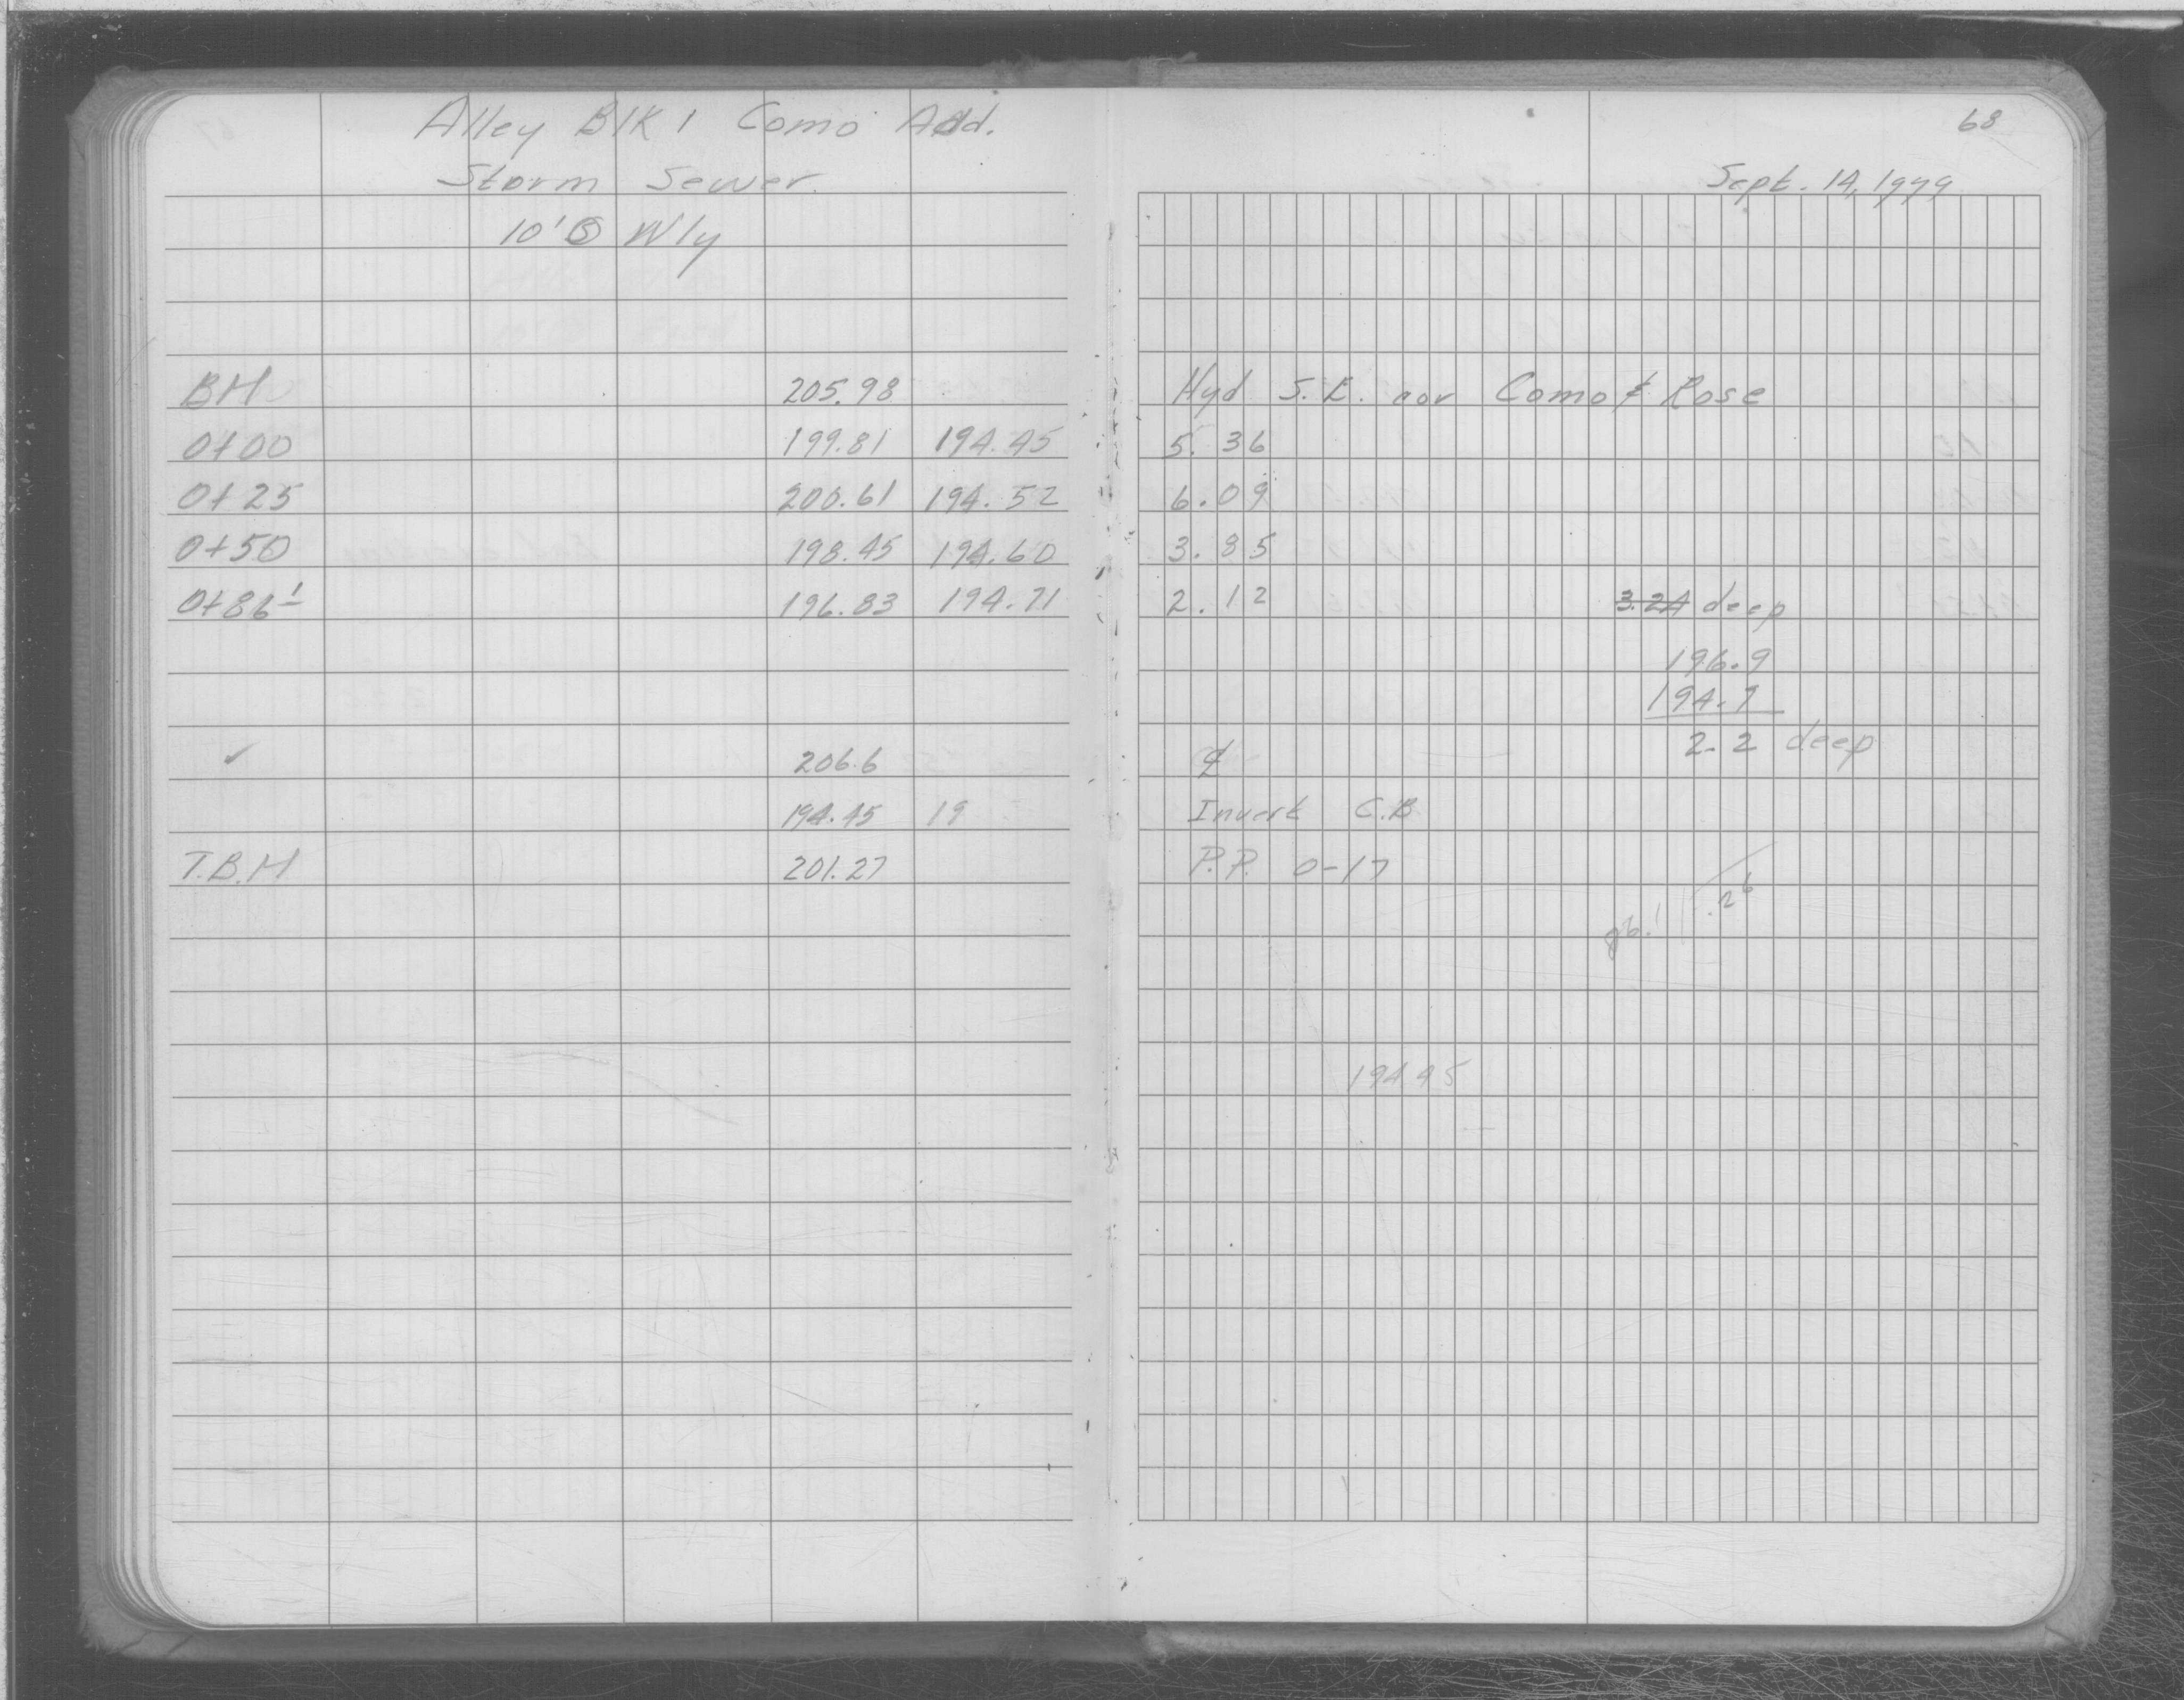 Alley Blk 1 Como Add.
Storm Sewer.
10' Ⓢ W'ly
68
Sept. 14, 1979
BM 205.98 Hyd S.E. cor Como & Rose
0+00 199.81 194.45 5.36
0+25 200.61 194.52 6.09
0+50 198.45 194.60 3.85
0+86 196.83 194.71 2.12 3.24 deep
196.9
194.7
2.2 deep
✓ 206.6 ₵
194.45 19 Invert C.B
T.B.M 201.27 P.P. 0-17
194 45